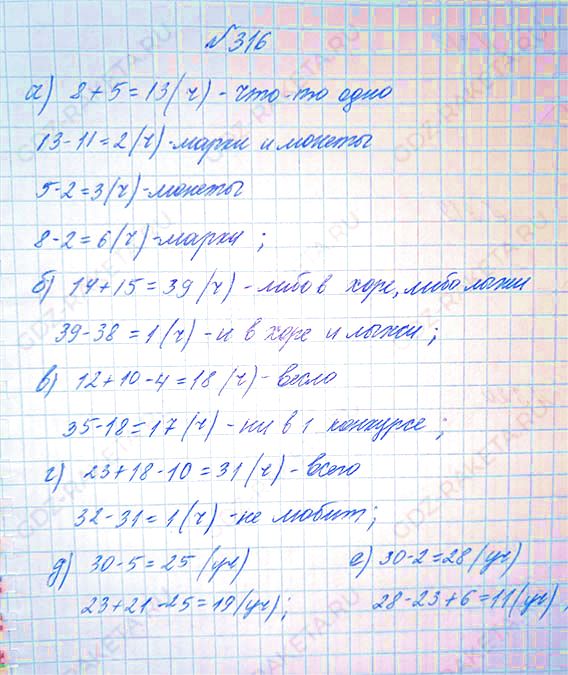 №316
а) 8+5=13(ч) - что-то одно
13-11=2(ч) - марки и монеты
5-2=3(ч) - монеты
8-2=6(ч) - марки;
б) 14+15=39(ч) - либо в хоре, либо лыжи
39-38=1(ч) - и в хоре и лыжи;
в) 12+10-4=18(ч) - всего
35-18=17(ч) - ни в 1 конкурсе;
г) 23+18-10=31(ч) - всего
32-31=1(ч) - не любит;
д) 30-5=25(уч) е) 30-2=28(уч)
23+21-25=19(уч); 28-23+6=11(уч),
GDZ-RAKETA.RU